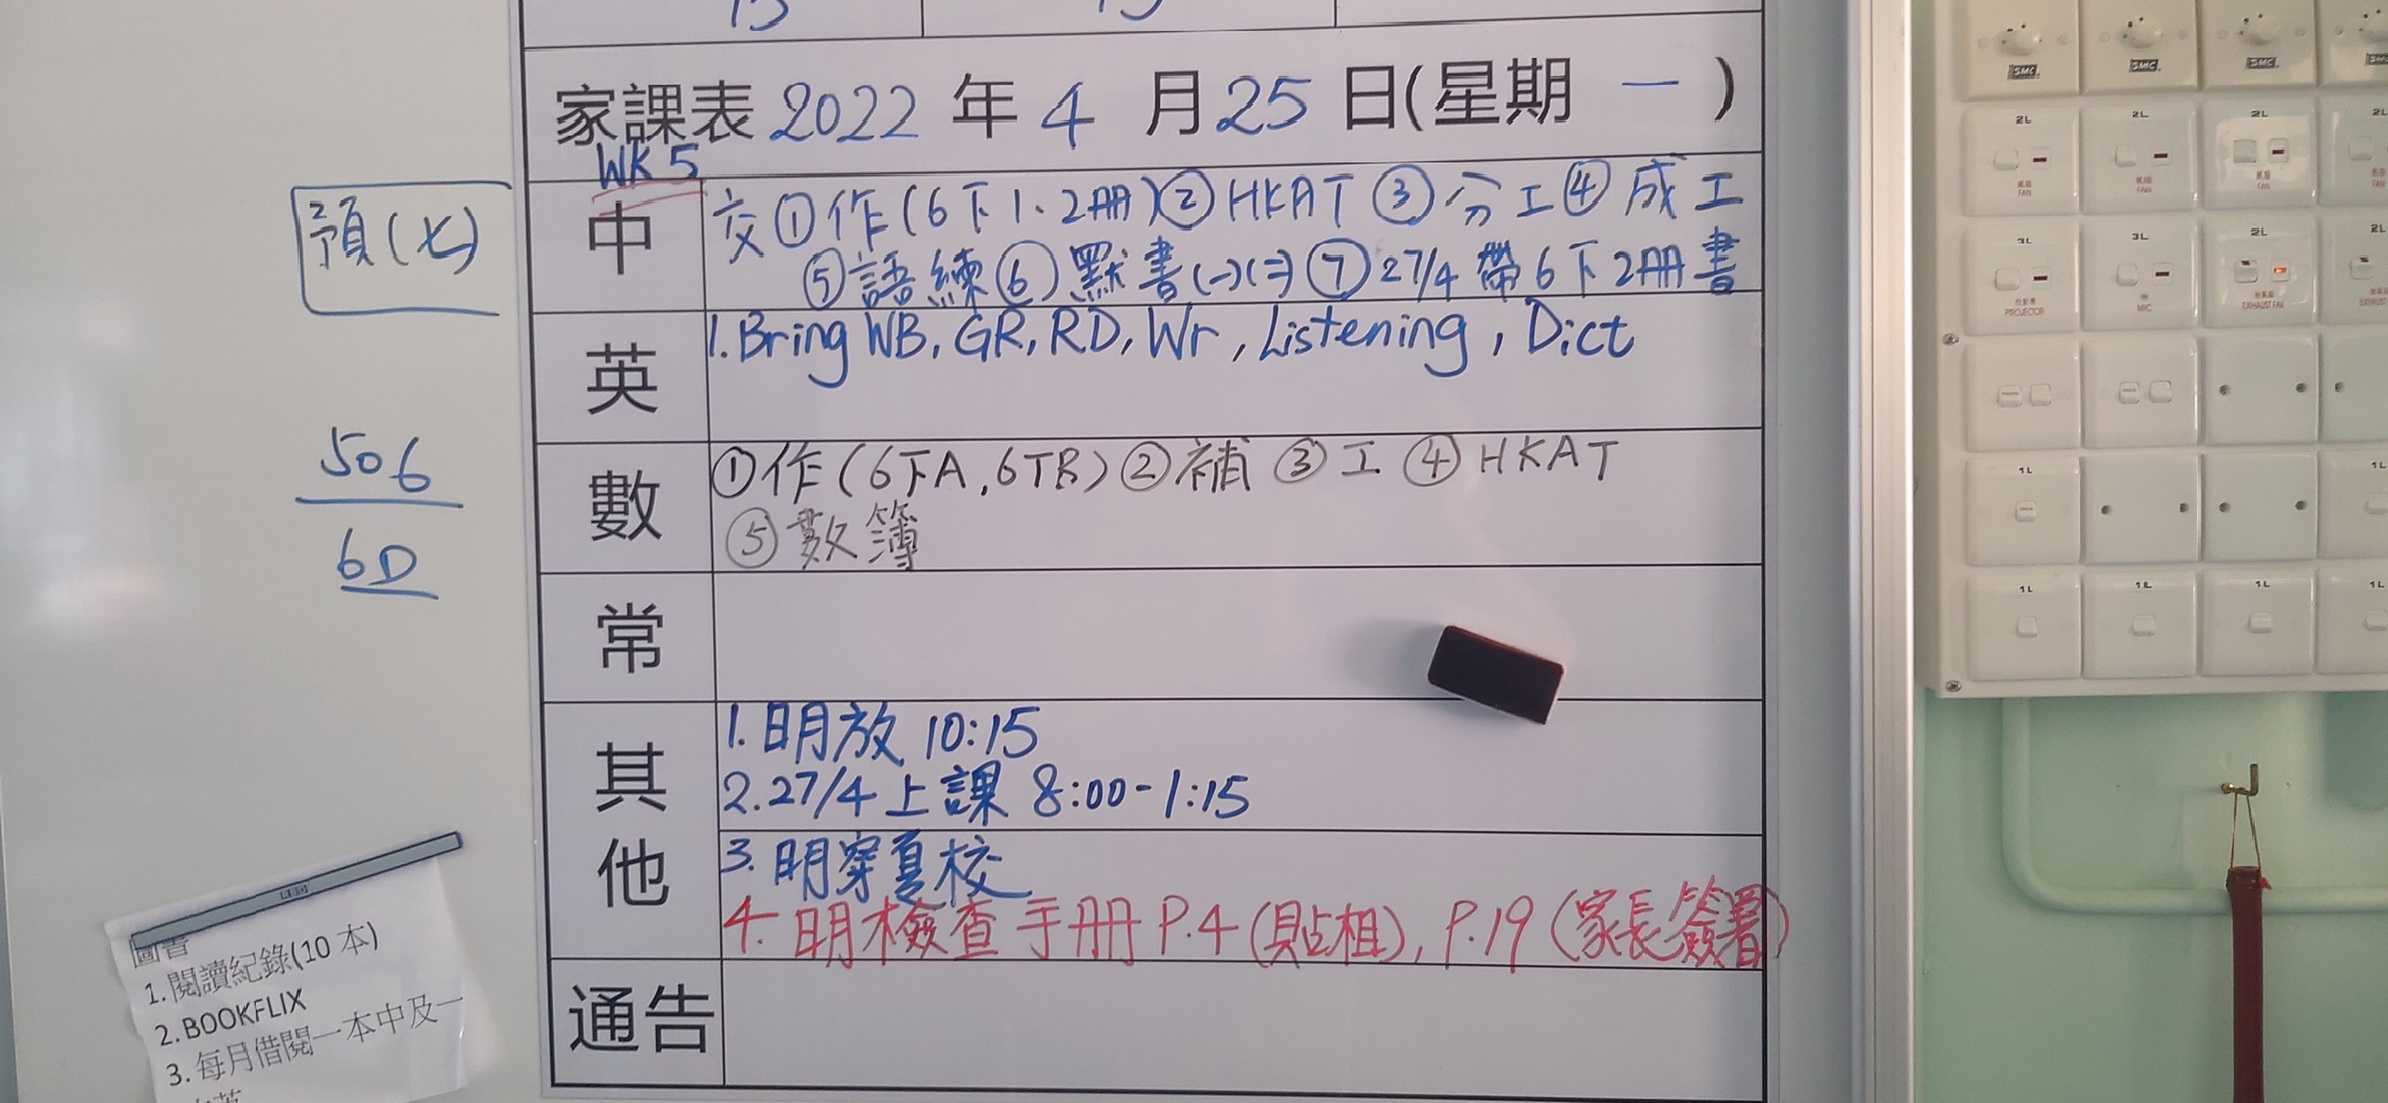 家課表 2022 年 4 月 25 日(星期 一 )
WK 5
預(七)
中
交①作(6下1、2冊)②HKAT③分工④成工
⑤語練⑥默書(一)(二)⑦27/4帶6下2冊書
英
1. Bring WB, GR, RD, Wr, Listening, Dict
506
6D
數
①作(6下A,6下B)②補③工④HKAT
⑤數簿
常
其他
1. 明放 10:15
2. 27/4上課 8:00-1:15
3. 明穿夏校
4. 明檢查手冊 P.4(貼相), P.19(家長簽署)
通告
圖書
1. 閱讀紀錄(10 本)
2. BOOKFLIX
3. 每月借閱一本中及一
SMC SMC SMC SMC
2L 2L 2L 2L
風扇 FAN 風扇 FAN 風扇 FAN
3L 3L 2L 2L
投影機 PROJECTOR MIC 抽氣扇 EXHAUST FAN
1L 1L
1L 1L 1L 1L